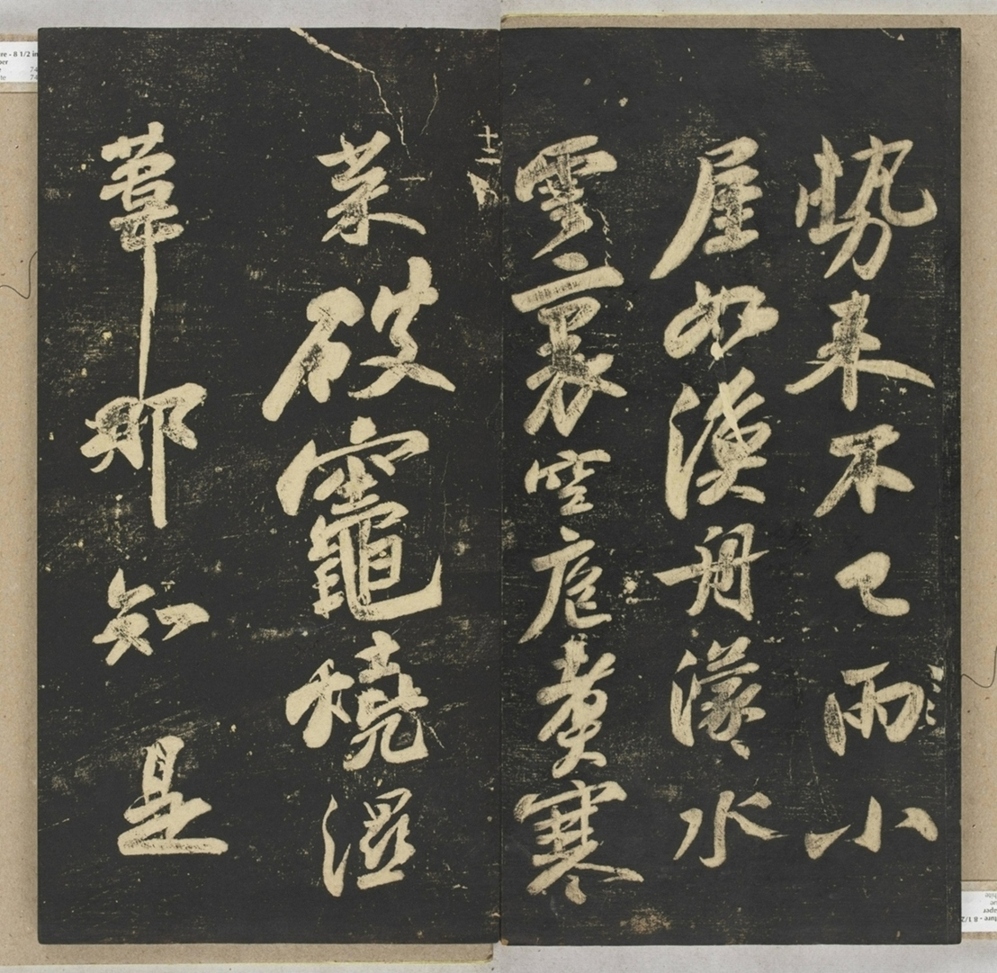 勢来不已雨小
屋如漁舟濛々水
雲裏空庖煑寒
十二
菜破竈燒濕
葦那知是